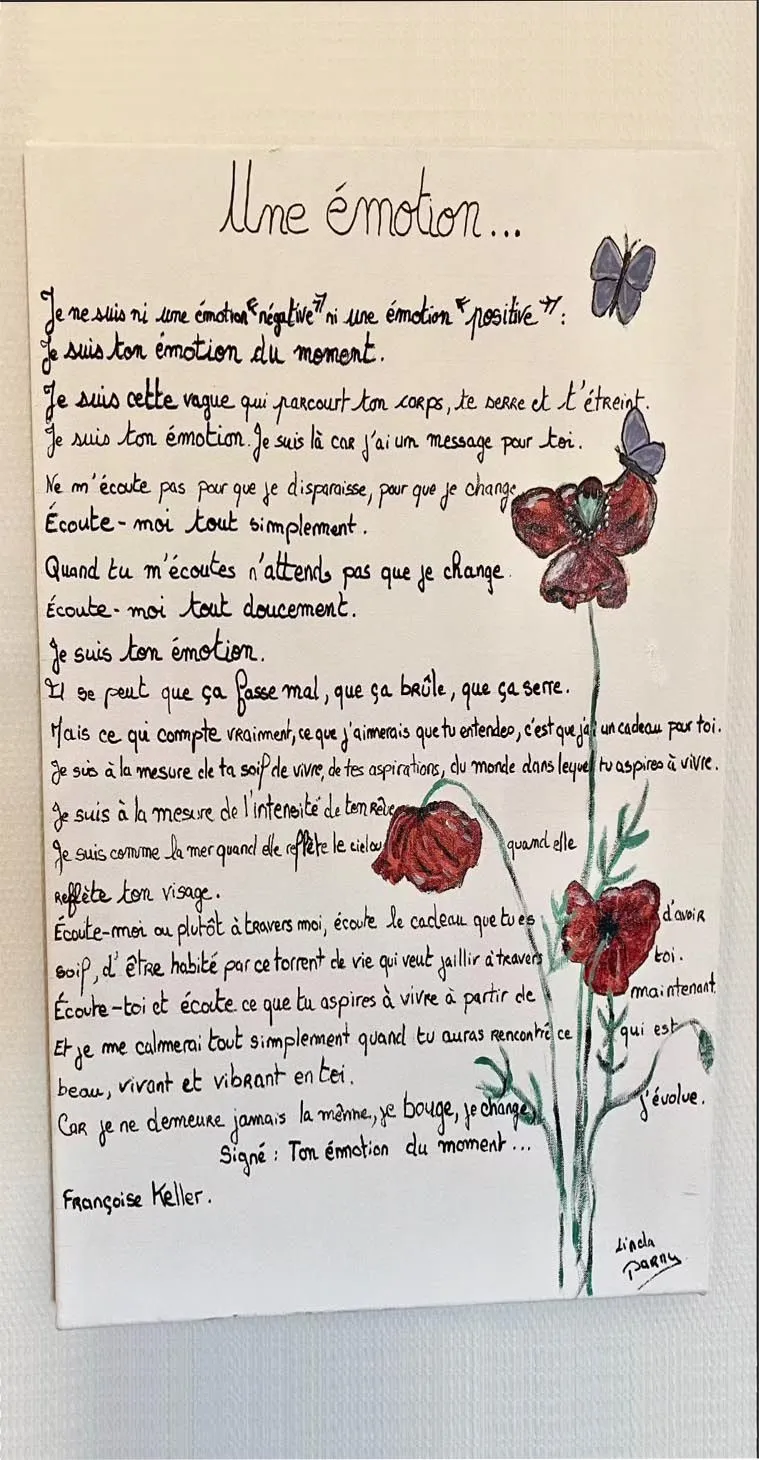 Une émotion...
Je ne suis ni une émotion "négative" ni une émotion "positive" :
Je suis ton émotion du moment.
Je suis cette vague qui parcourt ton corps, te serre et t'étreint.
Je suis ton émotion. Je suis là car j'ai un message pour toi.
Ne m'écoute pas pour que je disparaisse, pour que je change
Écoute-moi tout simplement.
Quand tu m'écoutes n'attends pas que je change.
Écoute-moi tout doucement.
Je suis ton émotion.
Il se peut que ça fasse mal, que ça brûle, que ça serre.
Mais ce qui compte vraiment, ce que j'aimerais que tu entendes, c'est que j'ai un cadeau pour toi.
Je suis à la mesure de ta soif de vivre, de tes aspirations, du monde dans lequel tu aspires à vivre.
Je suis à la mesure de l'intensité de ton rêve
Je suis comme la mer quand elle reflète le ciel ou quand elle
reflète ton visage.
Écoute-moi ou plutôt à travers moi, écoute le cadeau que tu es d'avoir
soif, d'être habité par ce torrent de vie qui veut jaillir à travers toi.
Écoute-toi et écoute ce que tu aspires à vivre à partir de maintenant
Et je me calmerai tout simplement quand tu auras rencontré ce qui est
beau, vivant et vibrant en toi.
Car je ne demeure jamais la même, je bouge, je change, j'évolue.
Signé : Ton émotion du moment...
Françoise Keller.
Linda